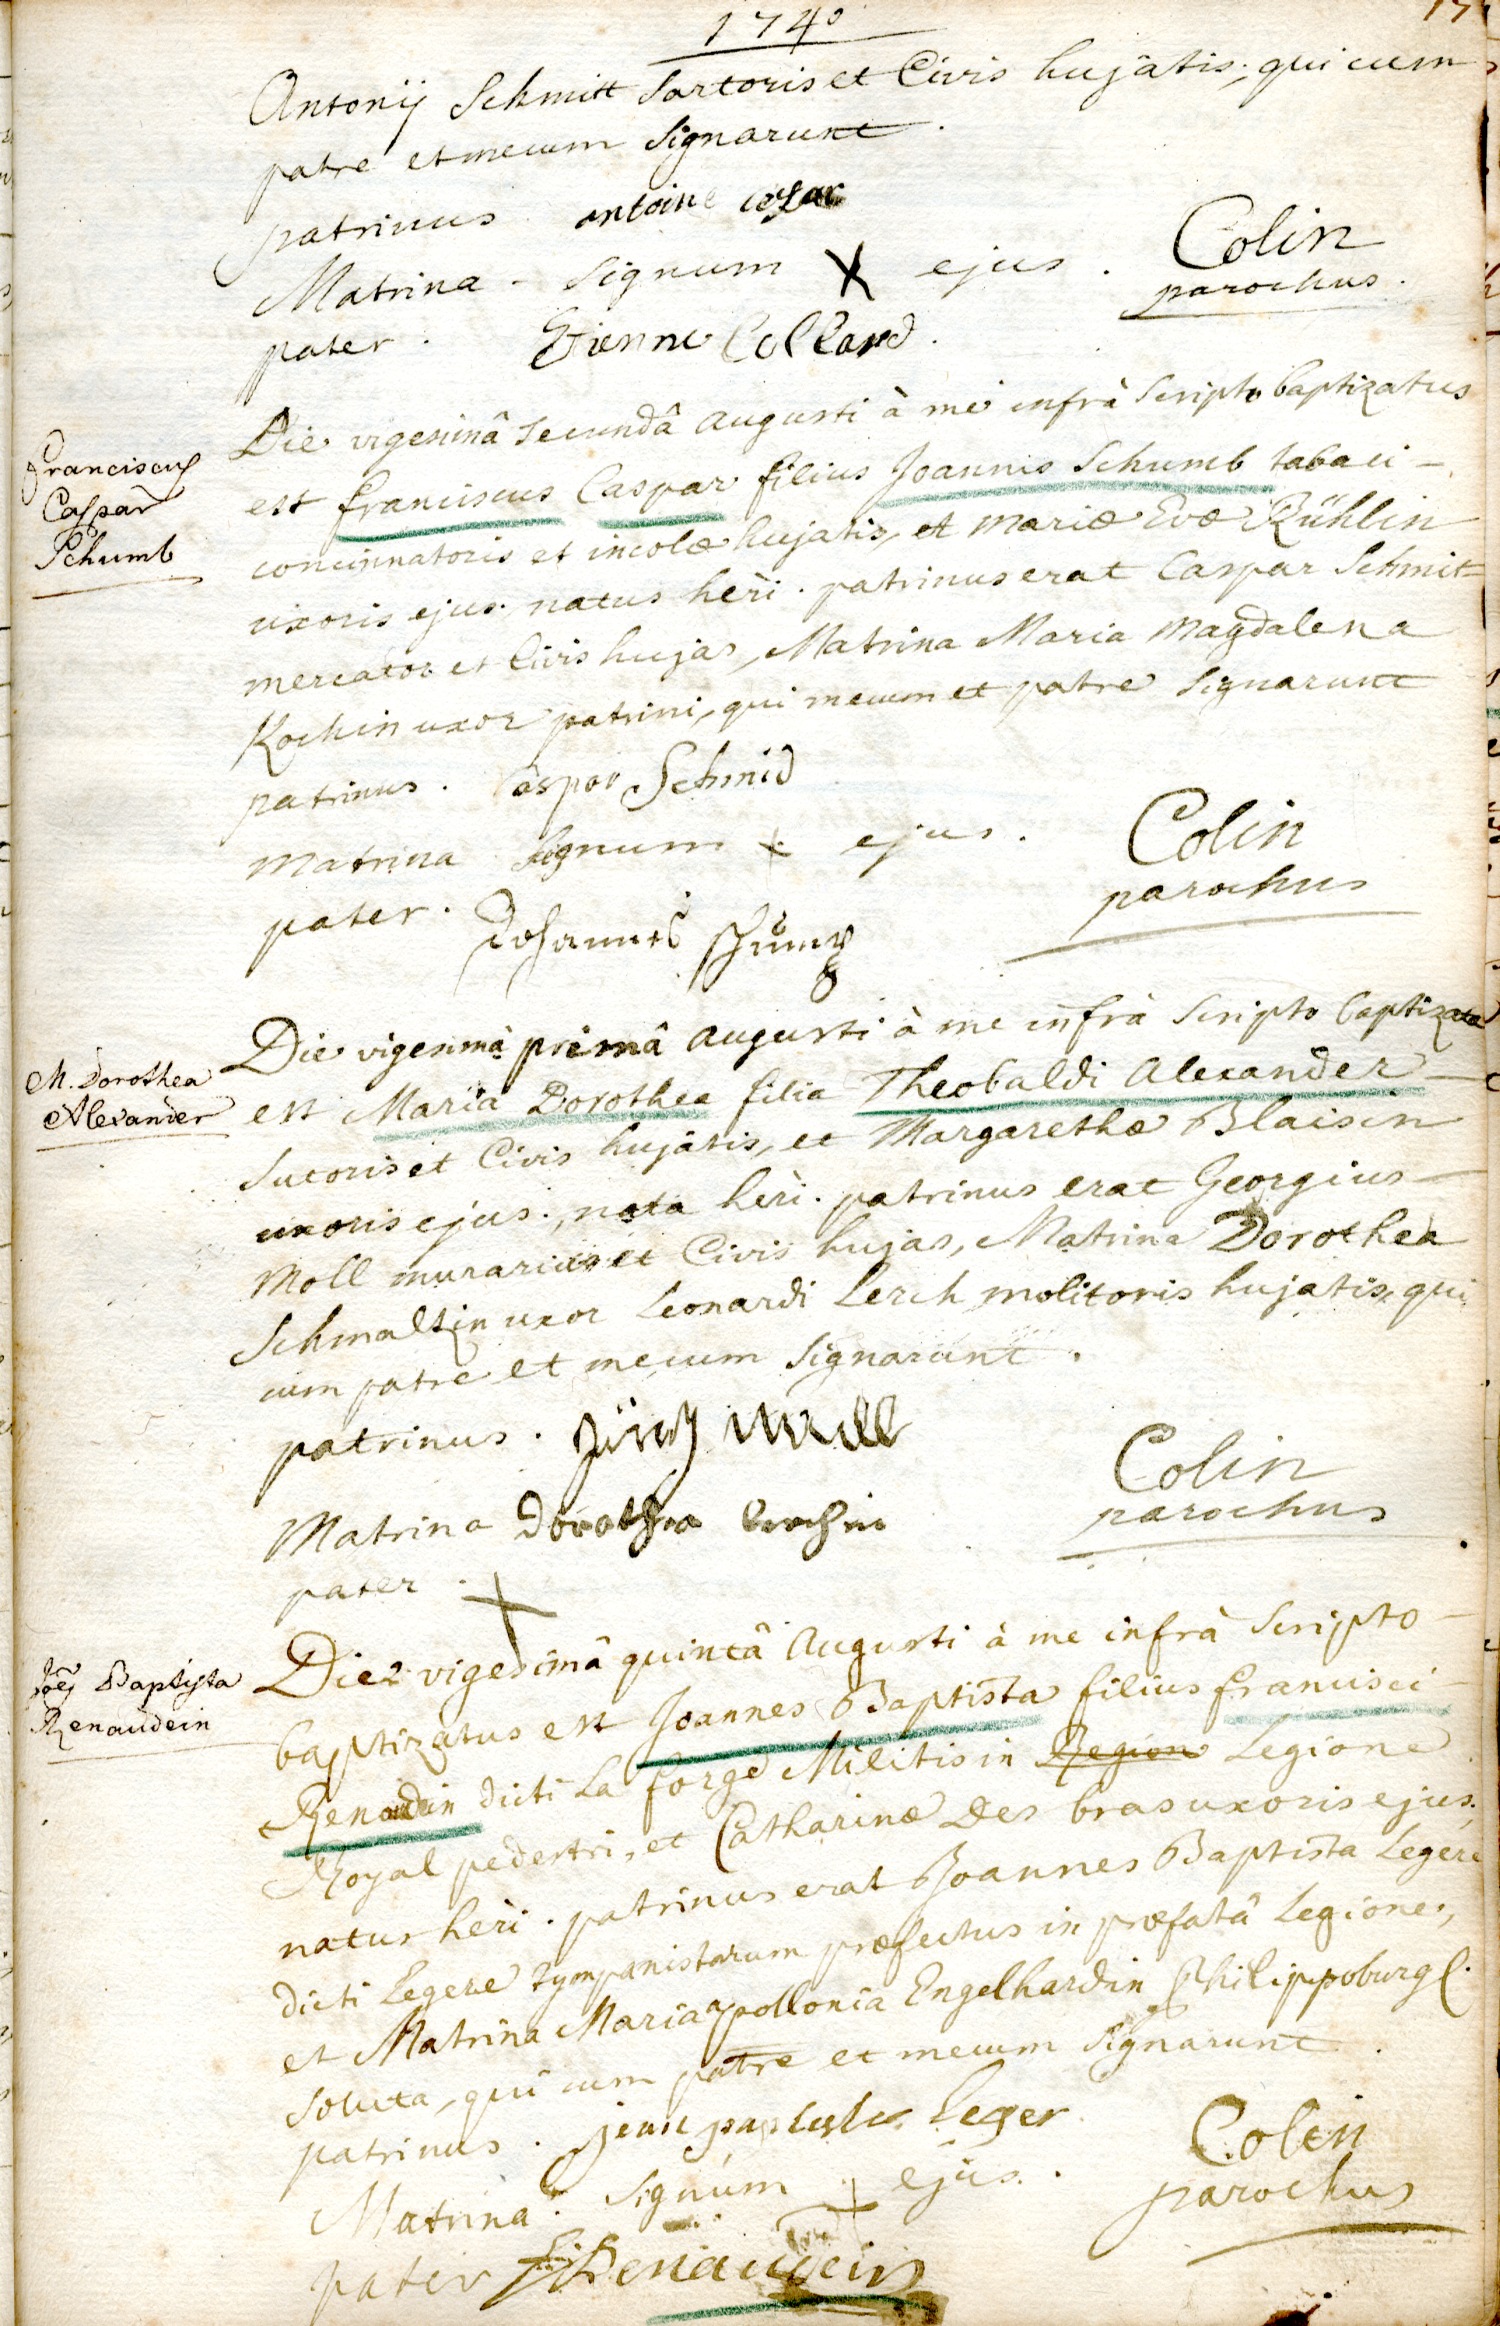 1740
Antonij Schmitt Sartoris et Civis hujàtis; qui cum
patre et mecum Signarunt.
patrinus antoine cesar
Matrina - Signum X ejus.
Colin
parochus.
pater. Etienne Colland.
Franciscus
Caspar
Schumb
Die vigesimâ Secundâ Augusti à me infrà Scripto baptizatus
est franciscus Caspar filius Joannis Schumb tabaci-
concinnatoris et incolæ hujatis, et Mariæ Evæ Rühlin
uxoris ejus. natus herì. patrinus erat Caspar Schmit=
mercator et Civis hujas, Matrina Maria Magdalena
Kochin uxor patrini, qui mecum et patre Signarunt
patrinus. Caspor Schmid
Matrina Signum + ejus.
Colin
parochus
pater. Johannes
M. Dorothea
Alexander
Die vigesimâ primâ Augusti à me infrà Scripto baptizata
est Maria Dorothea filia Theobaldi Alexander-
Sutoris et Civis hujàtis, et Margarethæ Blaisin
uxoris ejus., nata herì. patrinus erat Georgius-
Moll murarius et Civis hujas, Matrina Dorothea
Schmaltzin uxor Leonardi Lerch molitoris hujatis, qui
cum patre et mecum Signarunt.
patrinus. Jürg Mall
Matrina Dorothea Lerchin
Colin
parochus
pater. X
Joẽs Baptista
Renaudein
Die vigesimâ quintâ Augusti à me infrà Scripto-
baptizatus est Joannes Baptista filius francisci-
Renaudin dicti La forge Militis in Region Legione
Royal pedestri, et Catharinæ Des bras uxoris ejus.
natus herì. patrinus erat Joannes Baptista Legere
dicti Legere tympanistarum præfectus in præfatâ Legione,
et Matrina Maria apollonia Engelhardin Philippoburgl.
Soluta, qui cum patre et mecum Signarunt.
patrinus. jean paptiste Leger
Matrina: Signum + ejus.
Colin
parochus
pater Renaudein